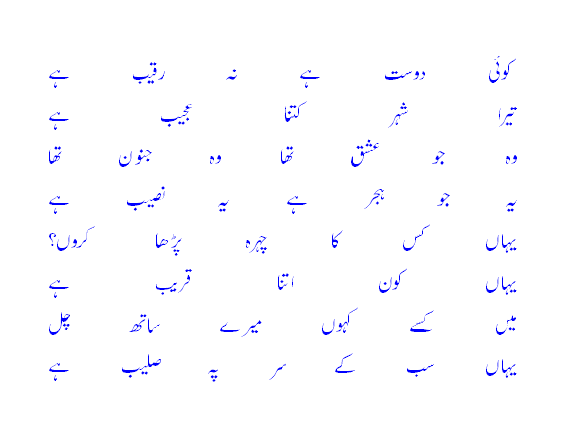 کوئی دوست ہے نہ رقیب ہے
تیرا شہر کتنا عجیب ہے
وہ جو عشق تھا وہ جنون تھا
یہ جو ہجر ہے یہ نصیب ہے
یہاں کس کا چہرہ پڑھا کروں؟
یہاں کون اتنا قریب ہے
میں کسے کہوں میرے ساتھ چل
یہاں سب کے سر پہ صلیب ہے